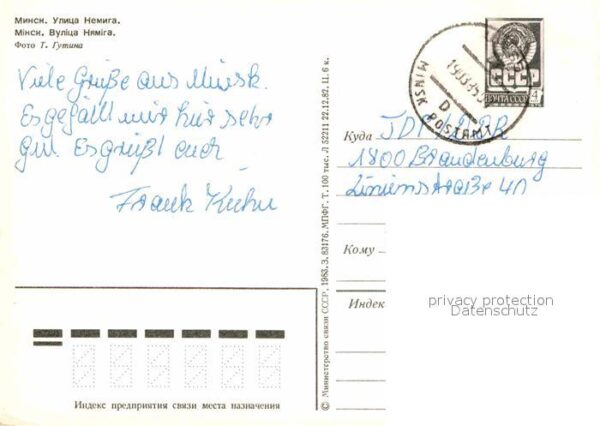 Минск. Улица Немига.
Мінск. Вуліца Няміга.
Фото Т. Гутина
Viele Grüße aus Minsk.
Es gefällt mir hier sehr
gut. Es grüßt euch
Frank Kuhn
© Министерство связи СССР, 1983. З. 83176. МПФГ. Т. 100 тыс. Л 52211 22.12.82. Ц. 6 к.
MINSK POSTAMT
СССР
ПОЧТА СССР 4
Куда
DDR
1800 Brandenburg
Linienstraße 4
Кому
Индек
privacy protection
Datenschutz
Индекс предприятия связи места назначения